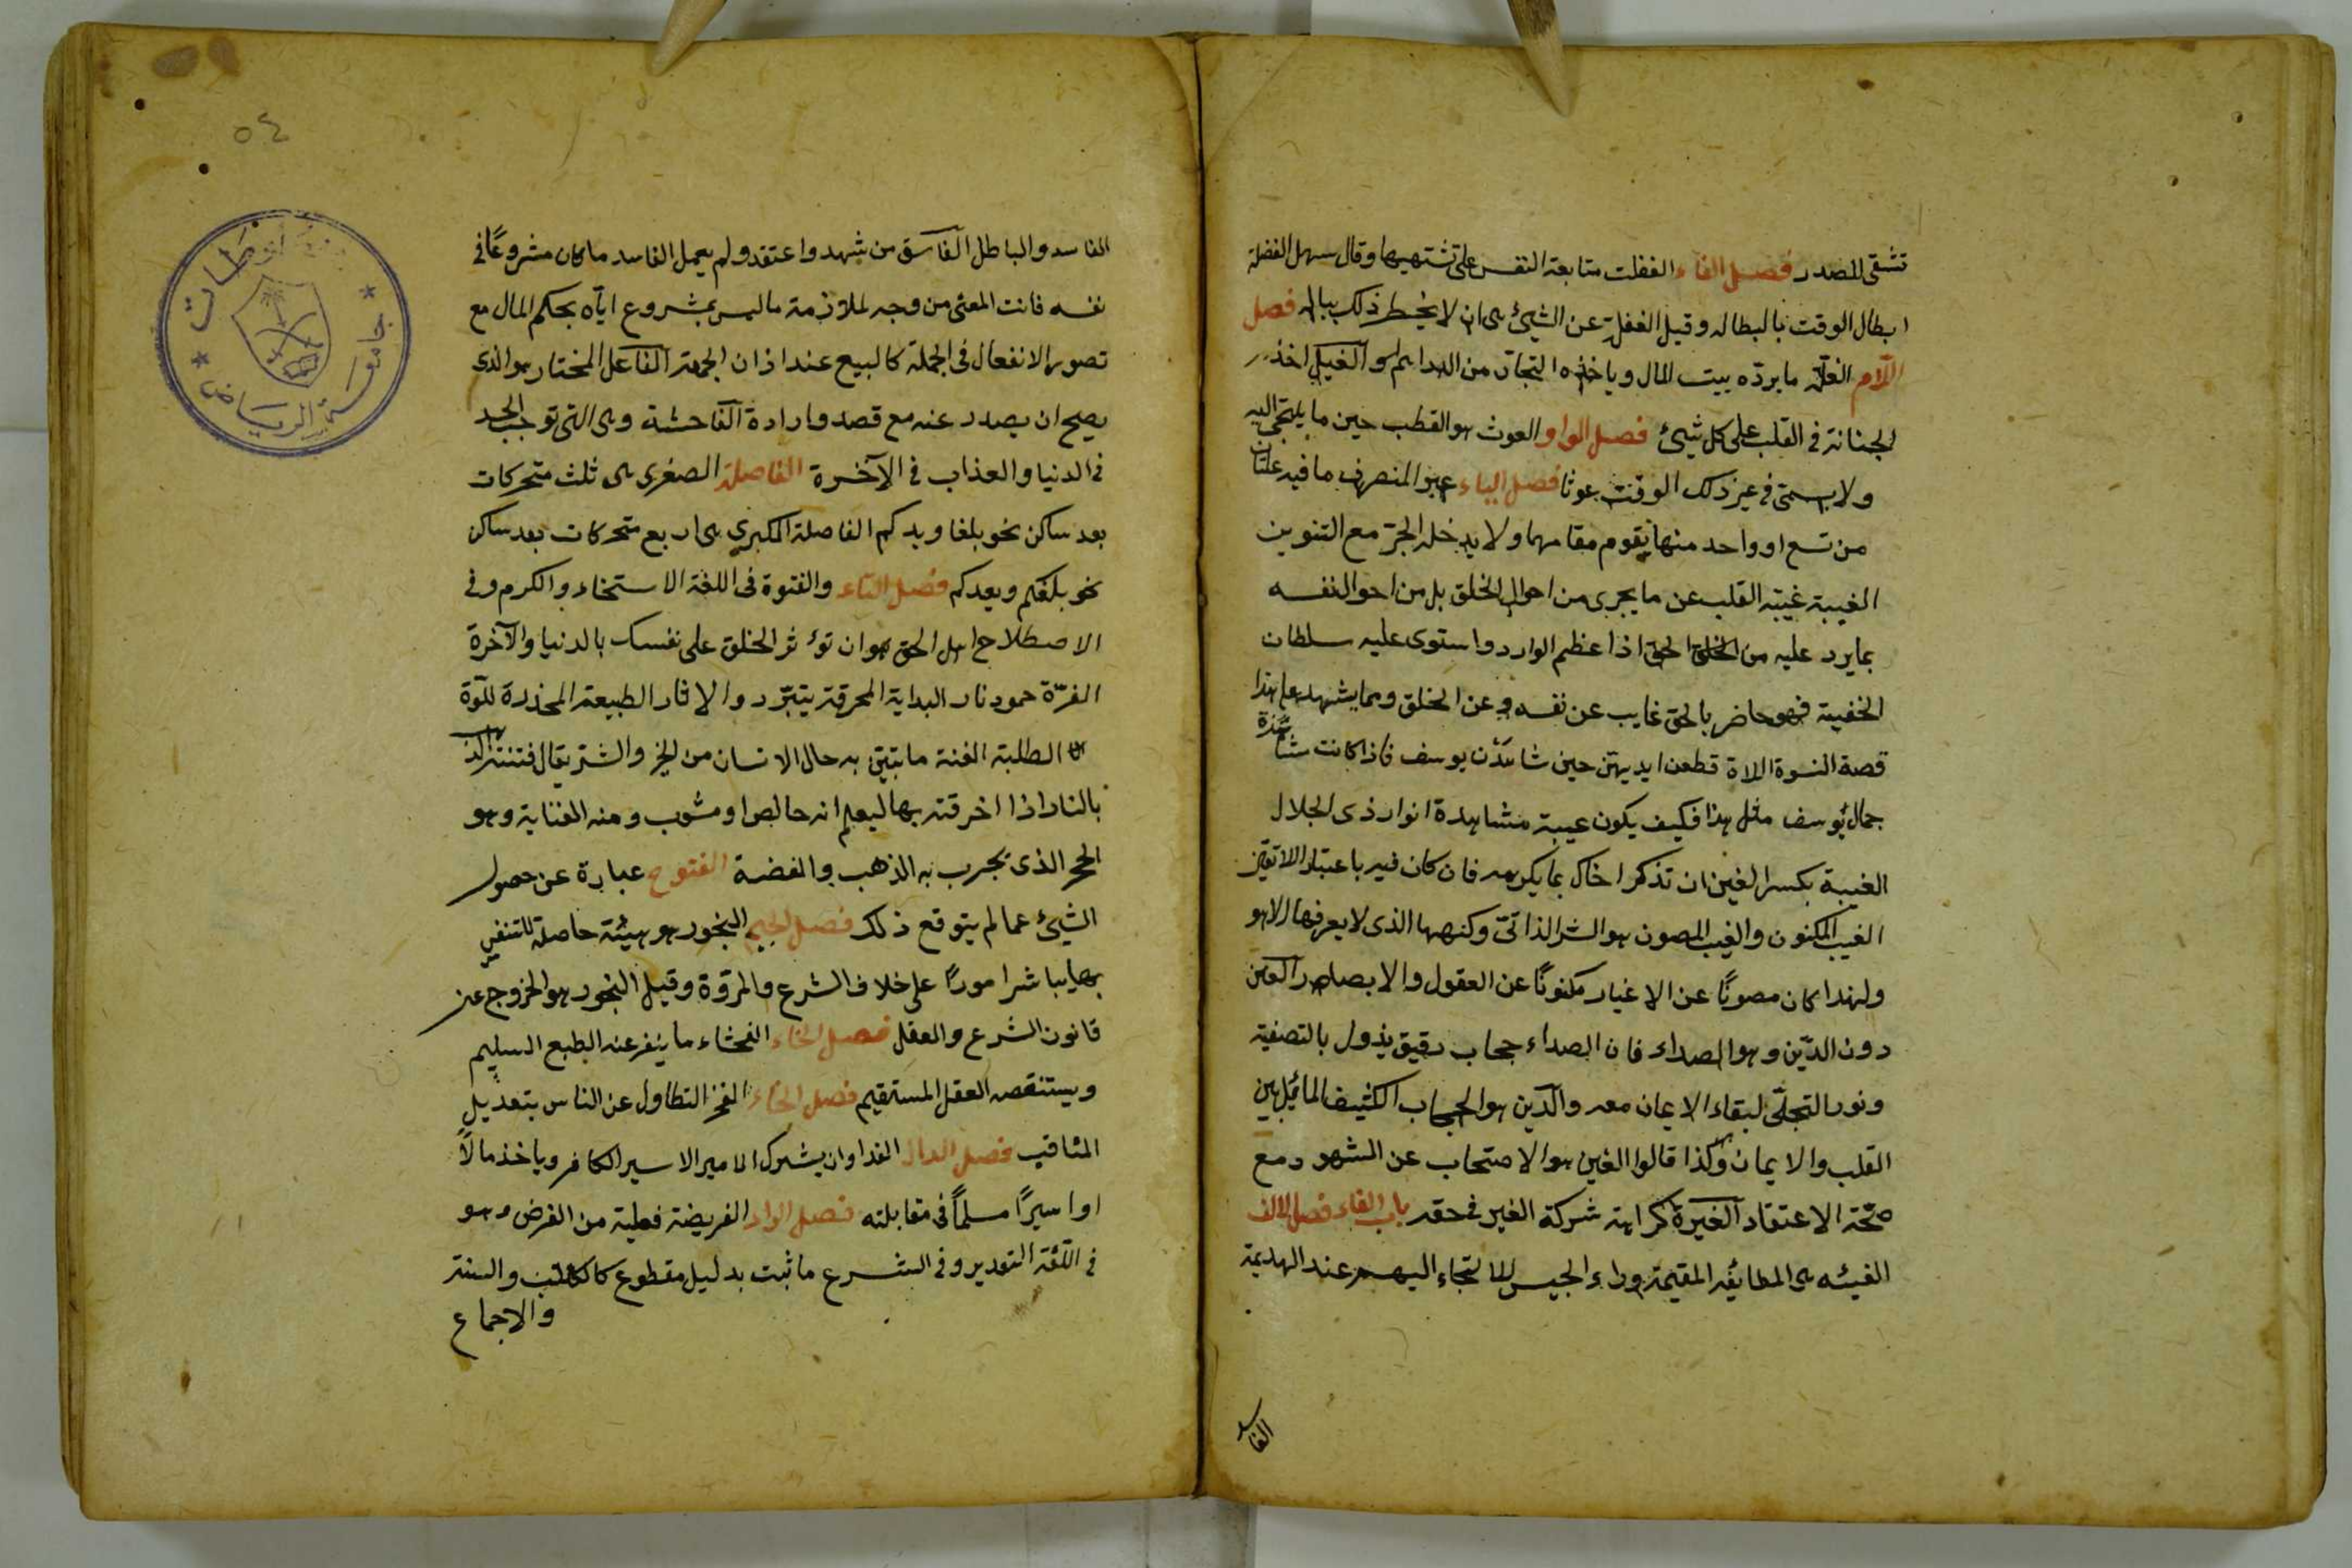 تشقى المصدر فصل الفاء الغفلت متابعة النفس على تشتهيها وقال سهل الغفلة
ابطال الوقت بالبطاله وقيل الغفلة عن الشيئ هى ان لا يخطر ذلك بباله فصل
اللام الغلّة ما يردّه بيت المال وياخذه التجار من الدراهم
الجنانة فى القلب على كل شيئ فصل الواو الغوث هو القطب حين ما يلتجى اليه
ولا يسمى فى غير ذلك الوقت غوثا فصل الياء غير المنصرف ما فيه علتان
من تسع او واحد منها تقوم مقامهما ولا يدخله الجرّ مع التنوين
الغيبة غيبة القلب عن ما يجرى من احوال الخلق بل من احوال نفسه
بما يرد عليه من الخلق الحق اذا عظم الوارد واستوى عليه سلطان
الخفية فهو حاضر بالحق غايب عن نفسه وعن الخلق ومما يشهد على هذا
قصة النسوة اللاة قطعن ايديهن حين شاهدن يوسف فاذا كانت مشاهدة
جمال يوسف مثل هذا فكيف يكون غيبة مشاهدة انوار ذى الجلال
الغيبة بكسر الغين ان تذكر اخاك بما يكرهه فان كان فيه باعتبار
الغيب المكنون والغيب المصون هو السر الذاتى وكنهها الذى لا يعرفها الا هو
ولهذا كان مصونًا عن الاغيار مكنونًا عن العقول والابصار الغين
دون الدّين وهو الصداء فان الصداء حجاب رقيق يذول بالتصفية
ونور التجلّى لبقاء الايمان معه والدين هو الحجاب الكثيف المائل بين
القلب والايمان وكذا قالوا الغين هو الاحتجاب عن الشهود مع
صحّة الاعتقاد الغيرة كراهة شركة الغير فى حقه باب الفاء فصل الالف
الفيئه هى الطائفه المقيمة وراء الجيس للالتجاء اليهم عند الهديمة
الفاسد
٥٤
جامعة الرياض
الفاسد والباطل الفاسق من شهد واعتقد ولم يعمل الفاسد ما كان مشروعًا فى
نفسه فانت المعنى من وجه لملازمة ما ليس بمشروع ايآه بحكم المال مع
تصور الانفعال فى الجملة كالبيع عند اذان الجمعة الفاعل المختار هو الذى
يصح ان يصدر عنه مع قصد وارادة الفاحشة وهى التى توجب الحد
فى الدنيا والعذاب فى الآخرة الفاصلة الصغرى هى ثلث متحركات
بعد ساكن نحو بلغا ويدكم الفاصلة الكبرى هى اربع متحركات بعد ساكن
نحو بلغكم ويعدكم فصل التاء والفتوة فى اللغة الاستخاء والكرم وفى
الاصطلاح اهل الحق هو ان تؤثر الخلق على نفسك بالدنيا والآخرة
الفترّة خمود نار البداية المحرقة يتبرّد والاثار الطبيعة المخذرة للقوة
الطلبة الفتنة ما تبيّن به حال الانسان من الخير والشر يقال فتنت الذهب
بالنار اذا احرقته بها ليعلم انه خالص او مشوب ومنه الفتاية وهو
الحجر الذى يجرب به الذهب والفضة الفتوح عبارة عن حصول
الشيئ عما لم يتوقع ذلك فصل الجيم الفجور هو هيئة حاصلة للنفس
بها يباشر امورًا على خلاف الشرع والمروّة وقيل الفجور هو الخروج عن
قانون الشرع والعقل فصل الحاء الفحشاء ما ينفر عنه الطبع السليم
ويستنقصه العقل المستقيم فصل الخاء الفخر التطاول عن الناس بتعديل
المناقب فصل الدال الفدا وان يشترك الامير الاسير الكافر وياخذ مالاً
او اسيرًا مسلمًا فى مقابلته فصل الراء الفريضة فعلية من الفرض وهو
فى اللّغة التقدير وفى الشرع ما ثبت بدليل مقطوع كالكتاب والسنة
والاجماع